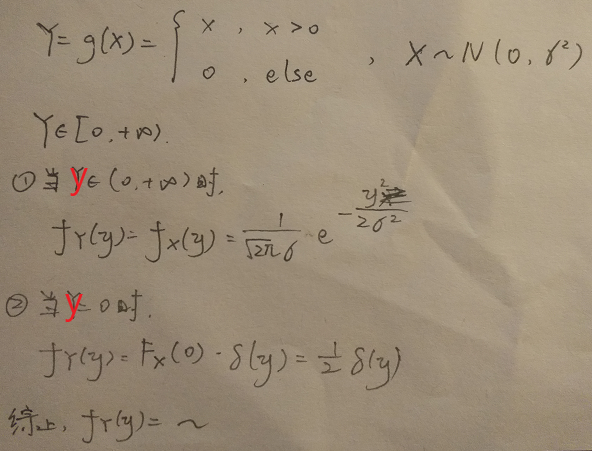 Y = g(x) = { x , x > 0
0 , else , X ~ N(0, σ²)
Y ∈ [0, +∞).
① 当 y ∈ (0, +∞) 时,
f_Y(y) = f_X(y) = 1/(√(2π) σ) e^(-y²/(2σ²))
② 当 y = 0 时,
f_Y(y) = F_X(0) · δ(y) = 1/2 δ(y)
综上, f_Y(y) = ~